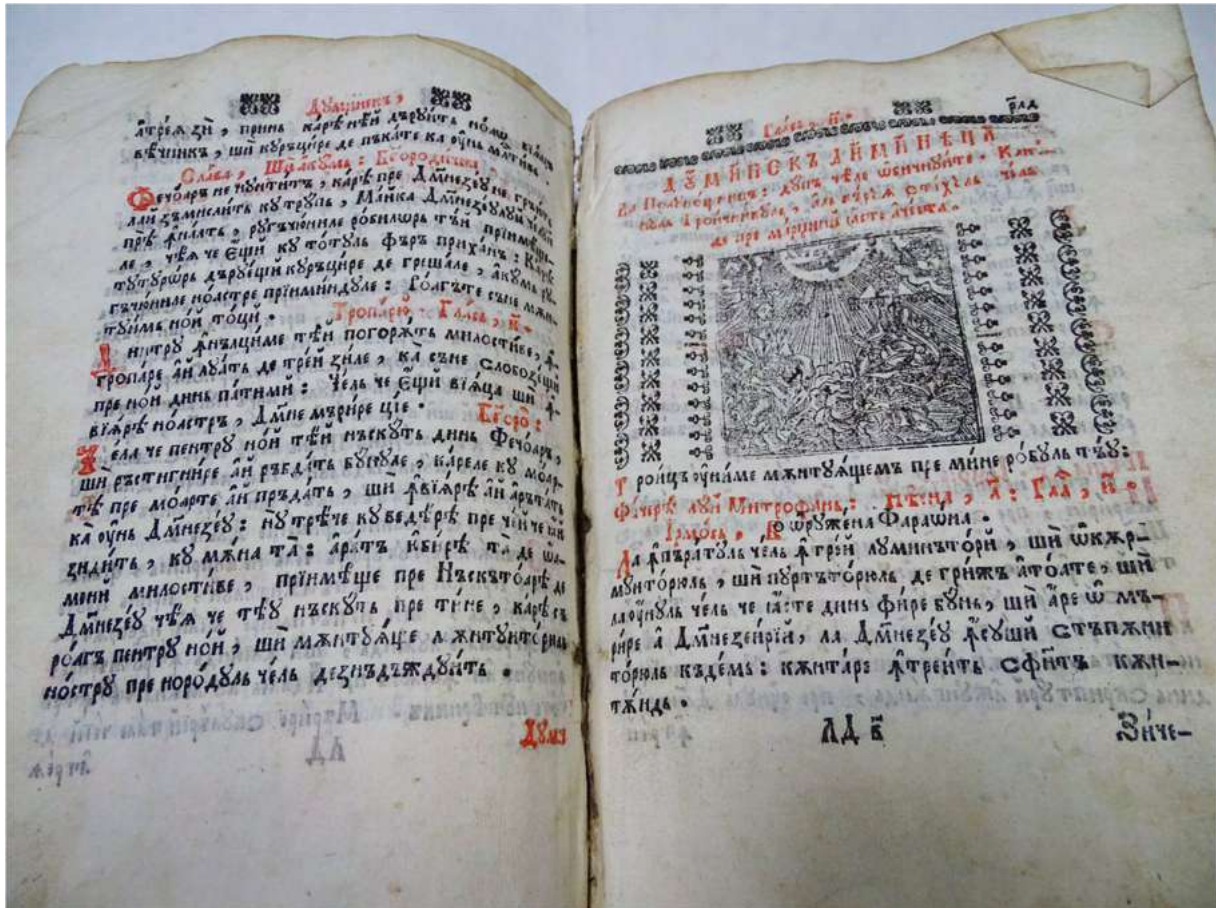 Думинекъ,
а треѧ зѝ, принь кáрѣ не́й дърꙋи́ть
вѣ́чникъ, шѝ кꙋръци́ре де пъкáте ка ѹ҆́нь
Слáва, Ши́ а҆кꙋмь: Бг҃оро́дична
Фечоáрь не нꙋнти́тъ, кáрѣ пре Дм҃незе́ꙋ не грѣи́ть
зъмисли́ть кꙋ трꙋпь, Мáйка Дм҃незе́ꙋлꙋи
ꙟ҆нáлть, рꙋгъчю́ниле ро́билѡрь тъ́й прїимѣ́ще
ле, чѣ́ѧ че є҆́щй кꙋ то́тꙋль фъръ прихáнъ: Кáрѣ
тꙋтꙋрѡрь дърꙋе́щй кꙋръци́ре де греша́ле, а҆кꙋмь рꙋ-
гъчю́ниле ноáстре прїими́ндꙋле: Роáгъте съне мѫн-
тꙋи́мь но́й то́ци.
Тропáрю: Глáсь, и҃.
Динтрꙋ ꙟ҆нълци́ме те́й погорѫ́ть милости́ве, ꙟ҆-
гропáре а́й лꙋáть де тре́й зи́ле, кá съне слобозе́щй
пре но́й динь пáтими: Че́ль че є҆́щй вїáца шѝ ꙟ҆-
вїѧ́рѣ ноáстръ, Дм҃не мъри́ре ци́е.
Бг҃оро́:
Че́ла че пентрꙋ но́й те́й нъскꙋ́ть динь Фечоáръ,
шѝ ръстигни́ре а́й ръбдáть бꙋ́нꙋле, кáреле кꙋ моáр-
тѣ пре моáрте а́й прьдáть, шѝ ꙟ҆вїѧ́рѣ а́й аръ́тáть
ка ѹ҆́нь Дм҃незе́ꙋ: нꙋ трѣ́че кꙋ ведѣ́рѣ пре чи́й че а́й
зиди́ть, кꙋ мѫ́на тà: áратъ ю҆би́рѣ тà де ѡ҆а-
мени милости́ве, прїимѣ́ще пре Нъскътоáрѣ де
Дм҃незе́ꙋ чѣ́ѧ че тѣ́ꙋ нъскꙋ́ть пре ти́не, кáрѣ съ
роáгъ пентрꙋ но́й, шѝ мѫнтꙋѧ́ще мѫнтꙋито́рюль
но́стрꙋ пре норо́дꙋль че́ль дезнъдъждꙋи́ть.
Дꙋми
Глáсь, и҃.
рл҃д
ДꙊМИ́НЕКЪ ДИМИНѢ́ЦА
Ла Полꙋно́щницъ: дꙋпъ че́ле ѡ҆бичнꙋи́те. Кано́-
нꙋль Тро́йчникꙋлꙋи,
Тро́ицъ ѹ҆ни́ме мѫнтꙋѧ́щемъ пре ми́не ро́бꙋль тъ́ꙋ:
Фáчерѣ лꙋи Митрофáнь: Пѣ́сна, а҃: Глá, и҃.
І҆рмо́сь, Во҆ѡрꙋжена Фараѡ́на.
Ла ꙟ҆пърáтꙋль че́ль ꙟ҆тре́й лꙋминъто́рй, шѝ ѡ҆кѫр-
мꙋито́рюль, шѝ пꙋртъто́рюль де гри́жъ ато́ате, шѝ
ла ѹ҆́нꙋль че́ль че ꙗ҆́сте динь фи́ре бꙋ́нь, шѝ áре ѡ҆ мъ-
ри́ре а Дм҃незеи́рїй, ла Дм҃незе́ꙋ ꙟ҆сꙋшй стъпѫни-
то́рюль къде́мь: кѫнтáрѣ ꙟ҆трей́ть сфѫ́нтъ кѫн-
тѫ́ндь.
ЛД в҃
Зи́че-